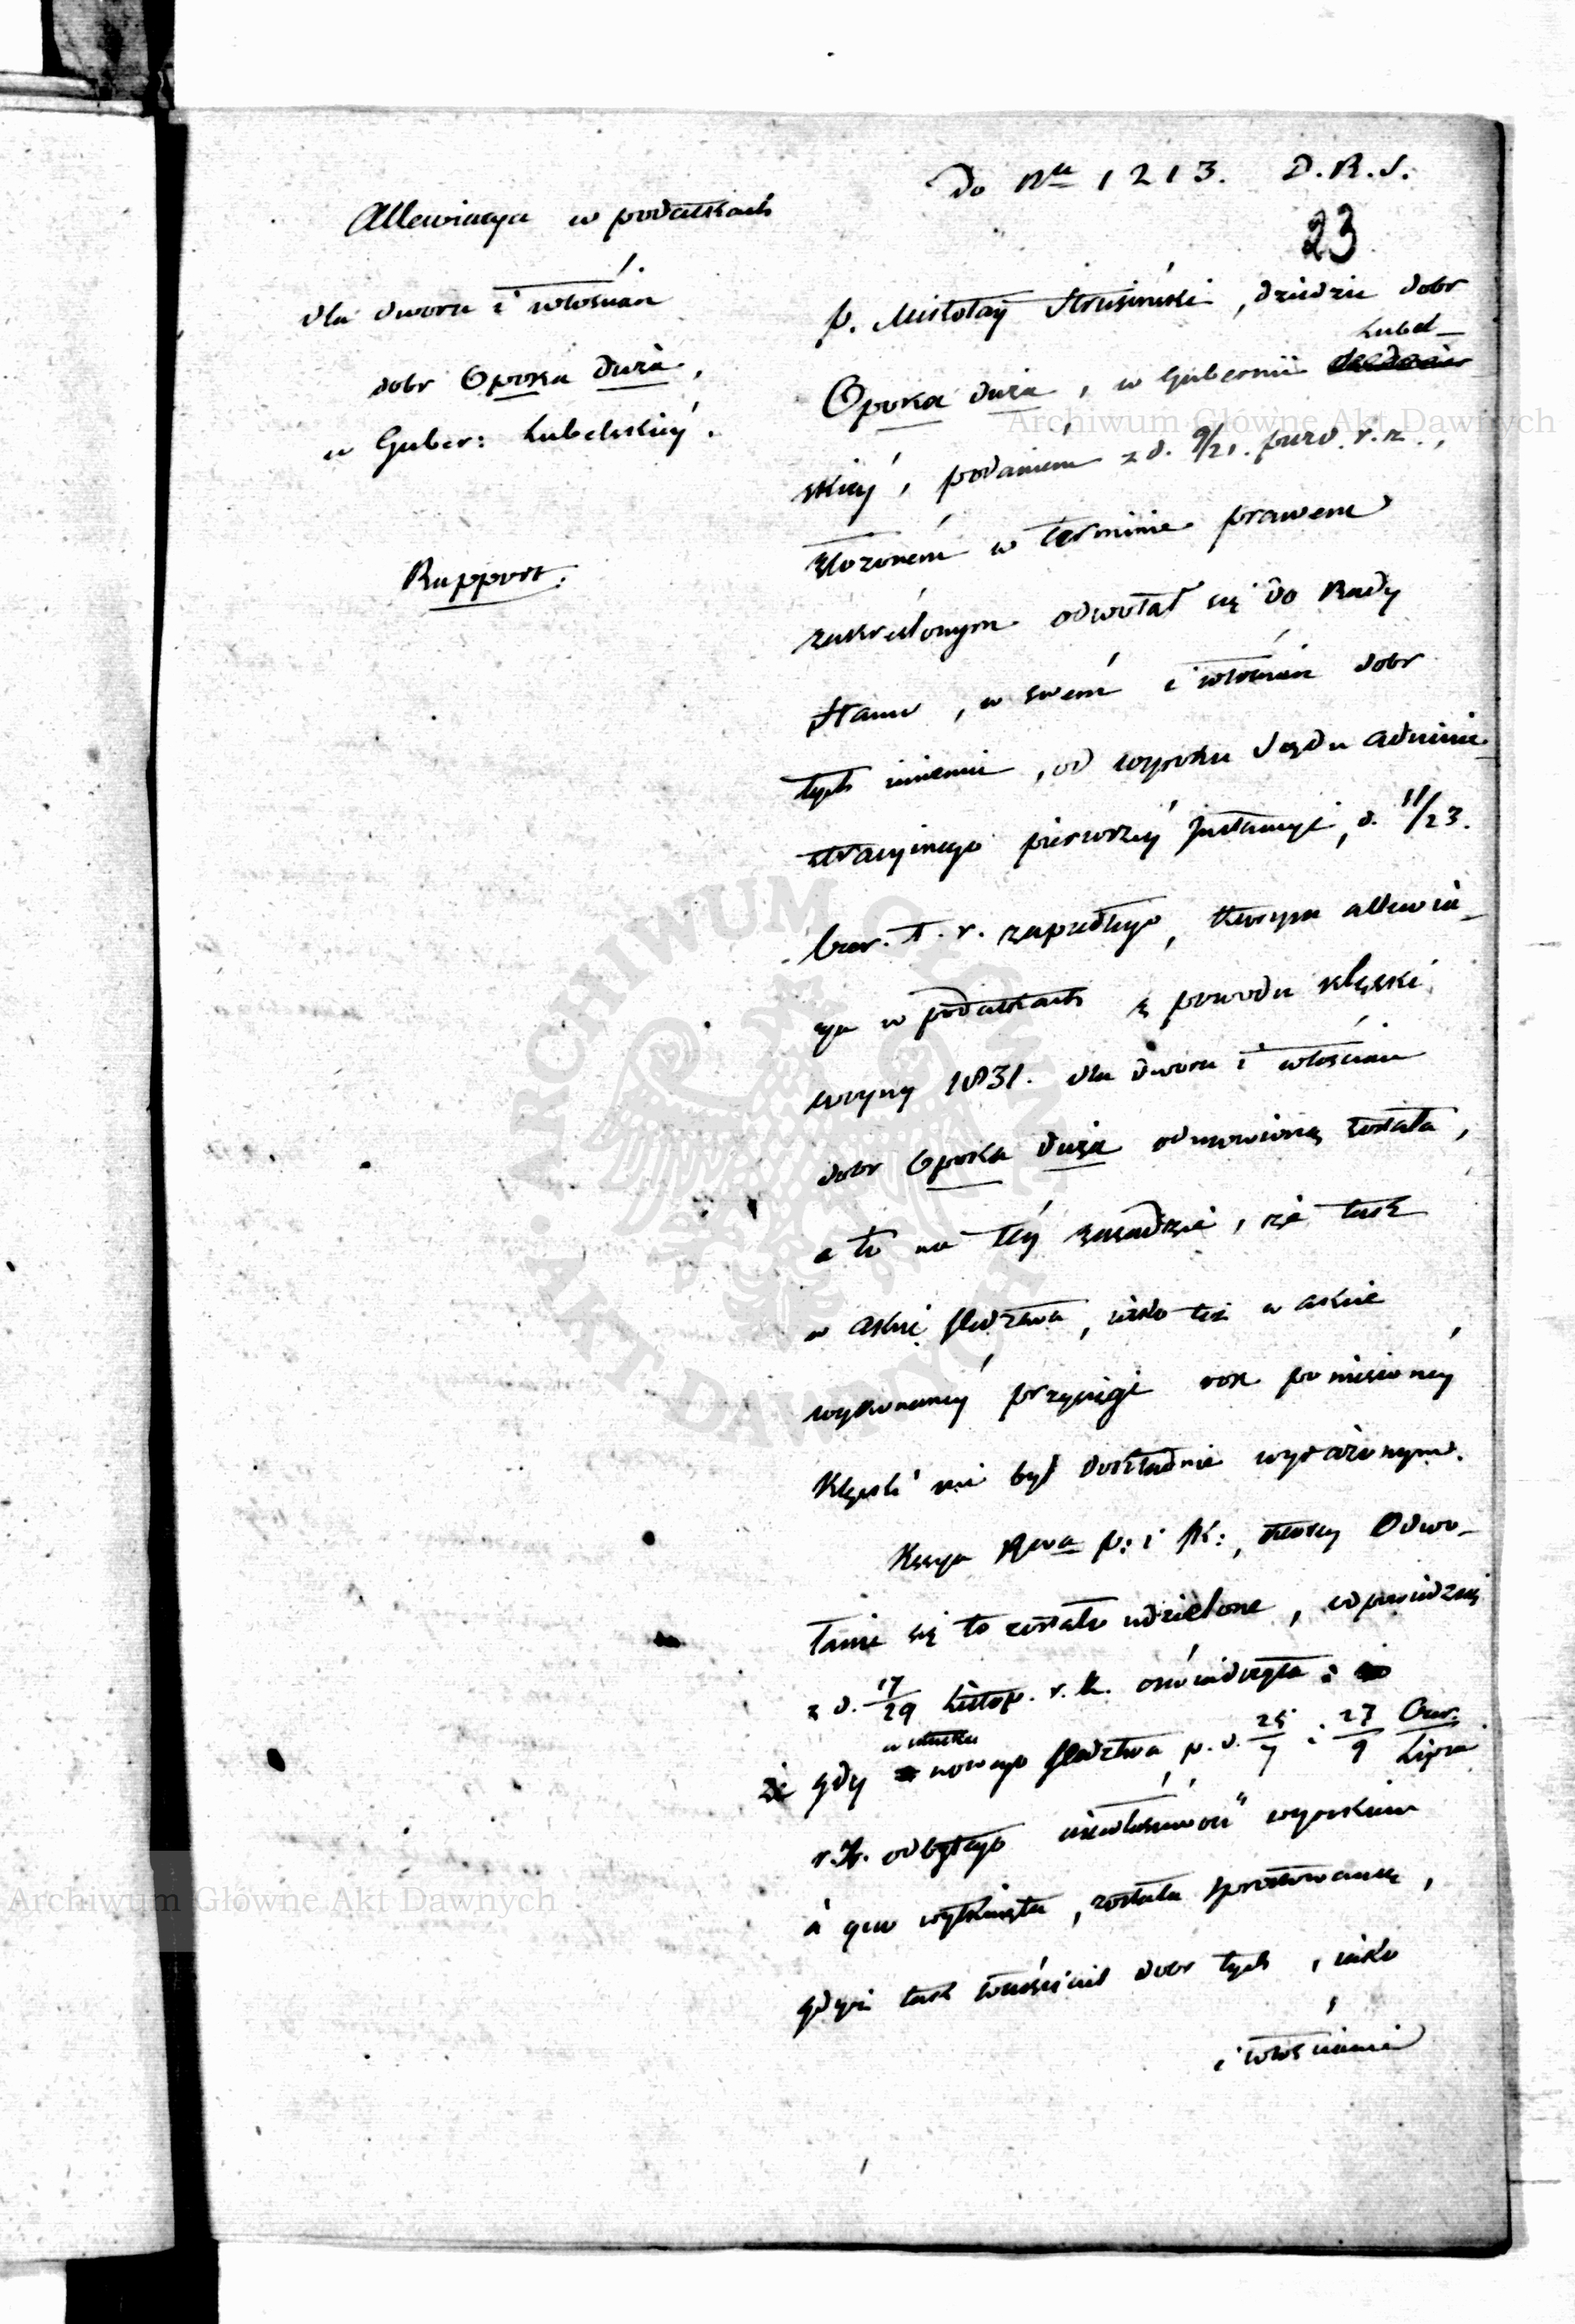 Do Nru 1213. D.R.S.
23
Allewiacya w podatkach
dla dworu i włościan
dobr Opoka duża,
w Guber: Lubelskiéy.
Rapport.
P. Mikołay Strusiński, dziedzic dobr
Opoka duża, w Gubernii Lubel-
skiéy, podaniem z d. 9/21. paźd. r. z.,
złożoném w terminie prawem
zakreślonym odwołał się do Rady
Stanu, w swém i włościan dobr
tych imieniu, od wyroku Sądu Admini-
stracyinego pierwszéy Instancyi, d. 11/23.
Czer. t. r. zapadłego, którym allewia-
cya w podatkach z powodu klęski
woyny 1831. dla dworu i włościan
dobr Opoka duża odmówioną została,
a to na téy zasadzie, że tak
w akcie śledztwa, iako też w akcie
wykonanéy przysięgi rok poniesionéy
klęski nie był dokładnie wyrażonym.
Kssya Rwa P: i Sk:, któréy Odwo-
łanie się to zostało udzielone, odpowiedzią
z d. 17/29 Listop. r. z. oświadczyła:
że gdy w skutku nowego śledztwa p. d. 25/7 i 27/9 Czer./Lipca
r. z. odbytego niewłaściwość wyrokiem
à quo wytknięta, została sprostowaną,
gdyż tak właściciel dobr tych, iako
i włościanie
Archiwum Główne Akt Dawnych
ARCHIWUM GŁÓWNE
AKT DAWNYCH
Archiwum Główne Akt Dawnych